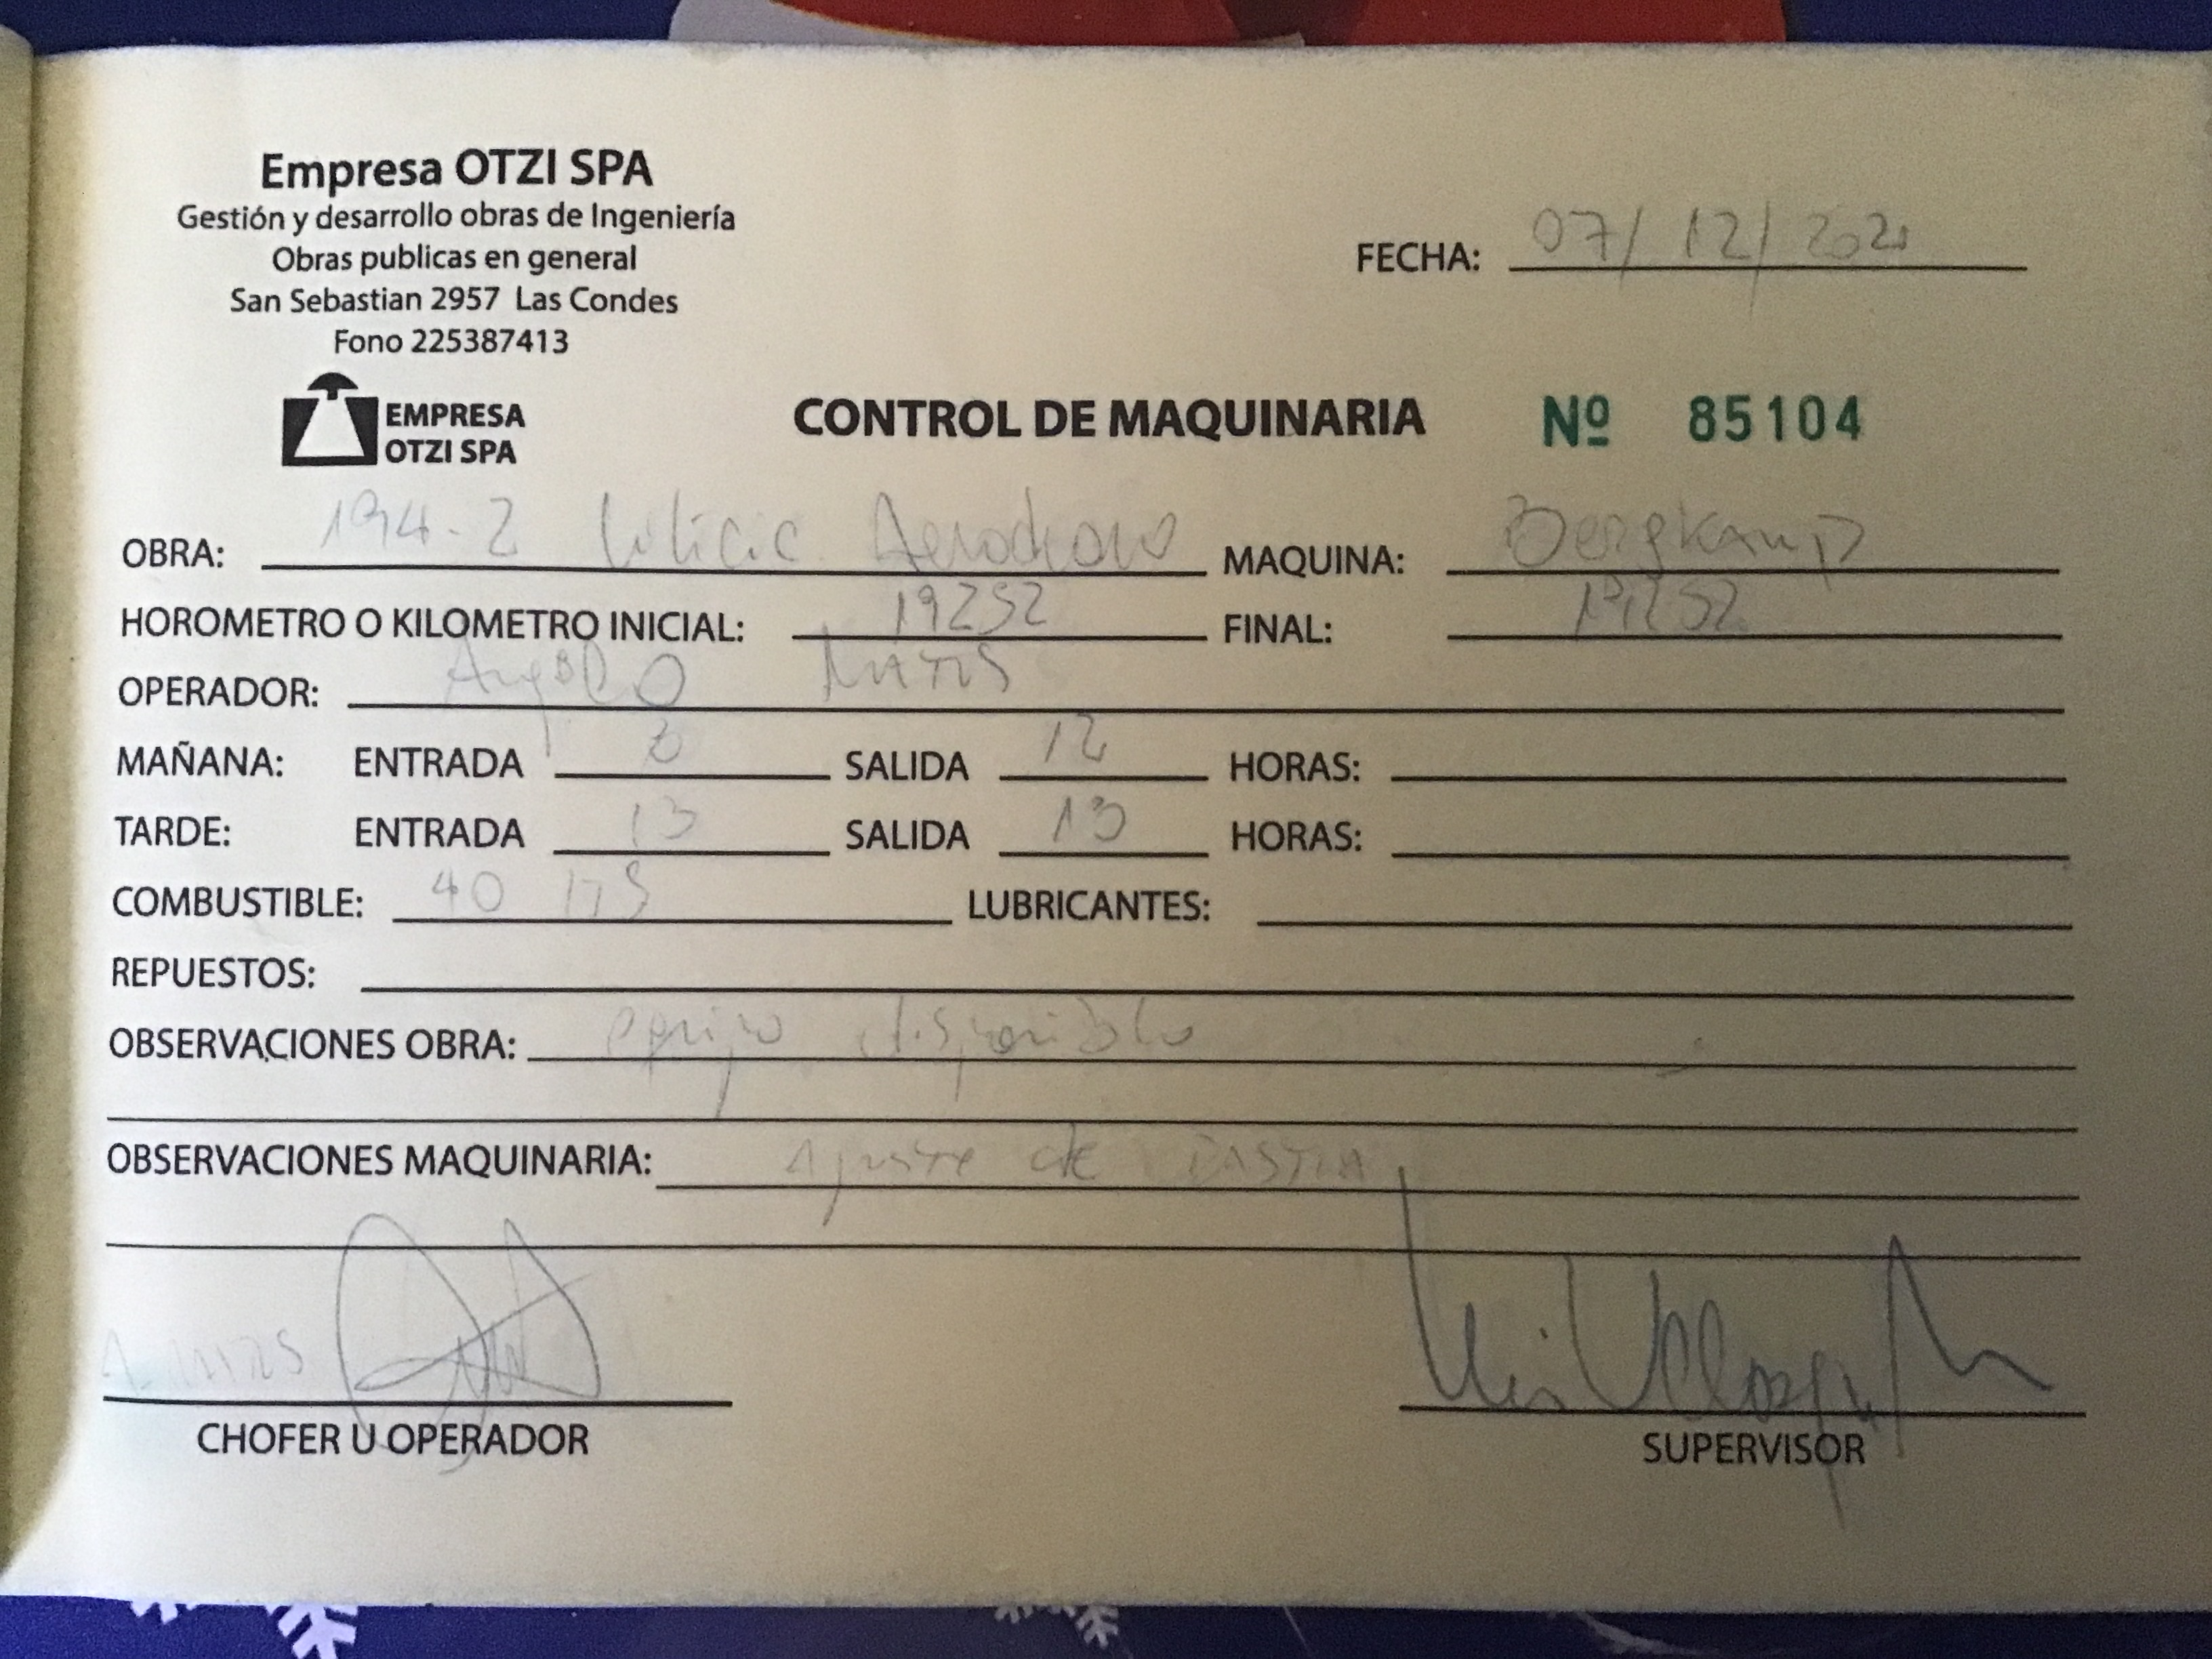 Empresa OTZI SPA
Gestión y desarrollo obras de Ingeniería
Obras publicas en general
San Sebastian 2957 Las Condes
Fono 225387413
FECHA: 07/12/202
EMPRESA
OTZI SPA
CONTROL DE MAQUINARIA Nº 85104
OBRA: 194-2 Aerodromo MAQUINA:
HOROMETRO O KILOMETRO INICIAL: 19252 FINAL: 19252
OPERADOR:
MAÑANA: ENTRADA 8 SALIDA 12 HORAS:
TARDE: ENTRADA 13 SALIDA 13 HORAS:
COMBUSTIBLE: 40 LTS LUBRICANTES:
REPUESTOS:
OBSERVACIONES OBRA: Equipo disponible
OBSERVACIONES MAQUINARIA: Ajuste de
CHOFER U OPERADOR
SUPERVISOR